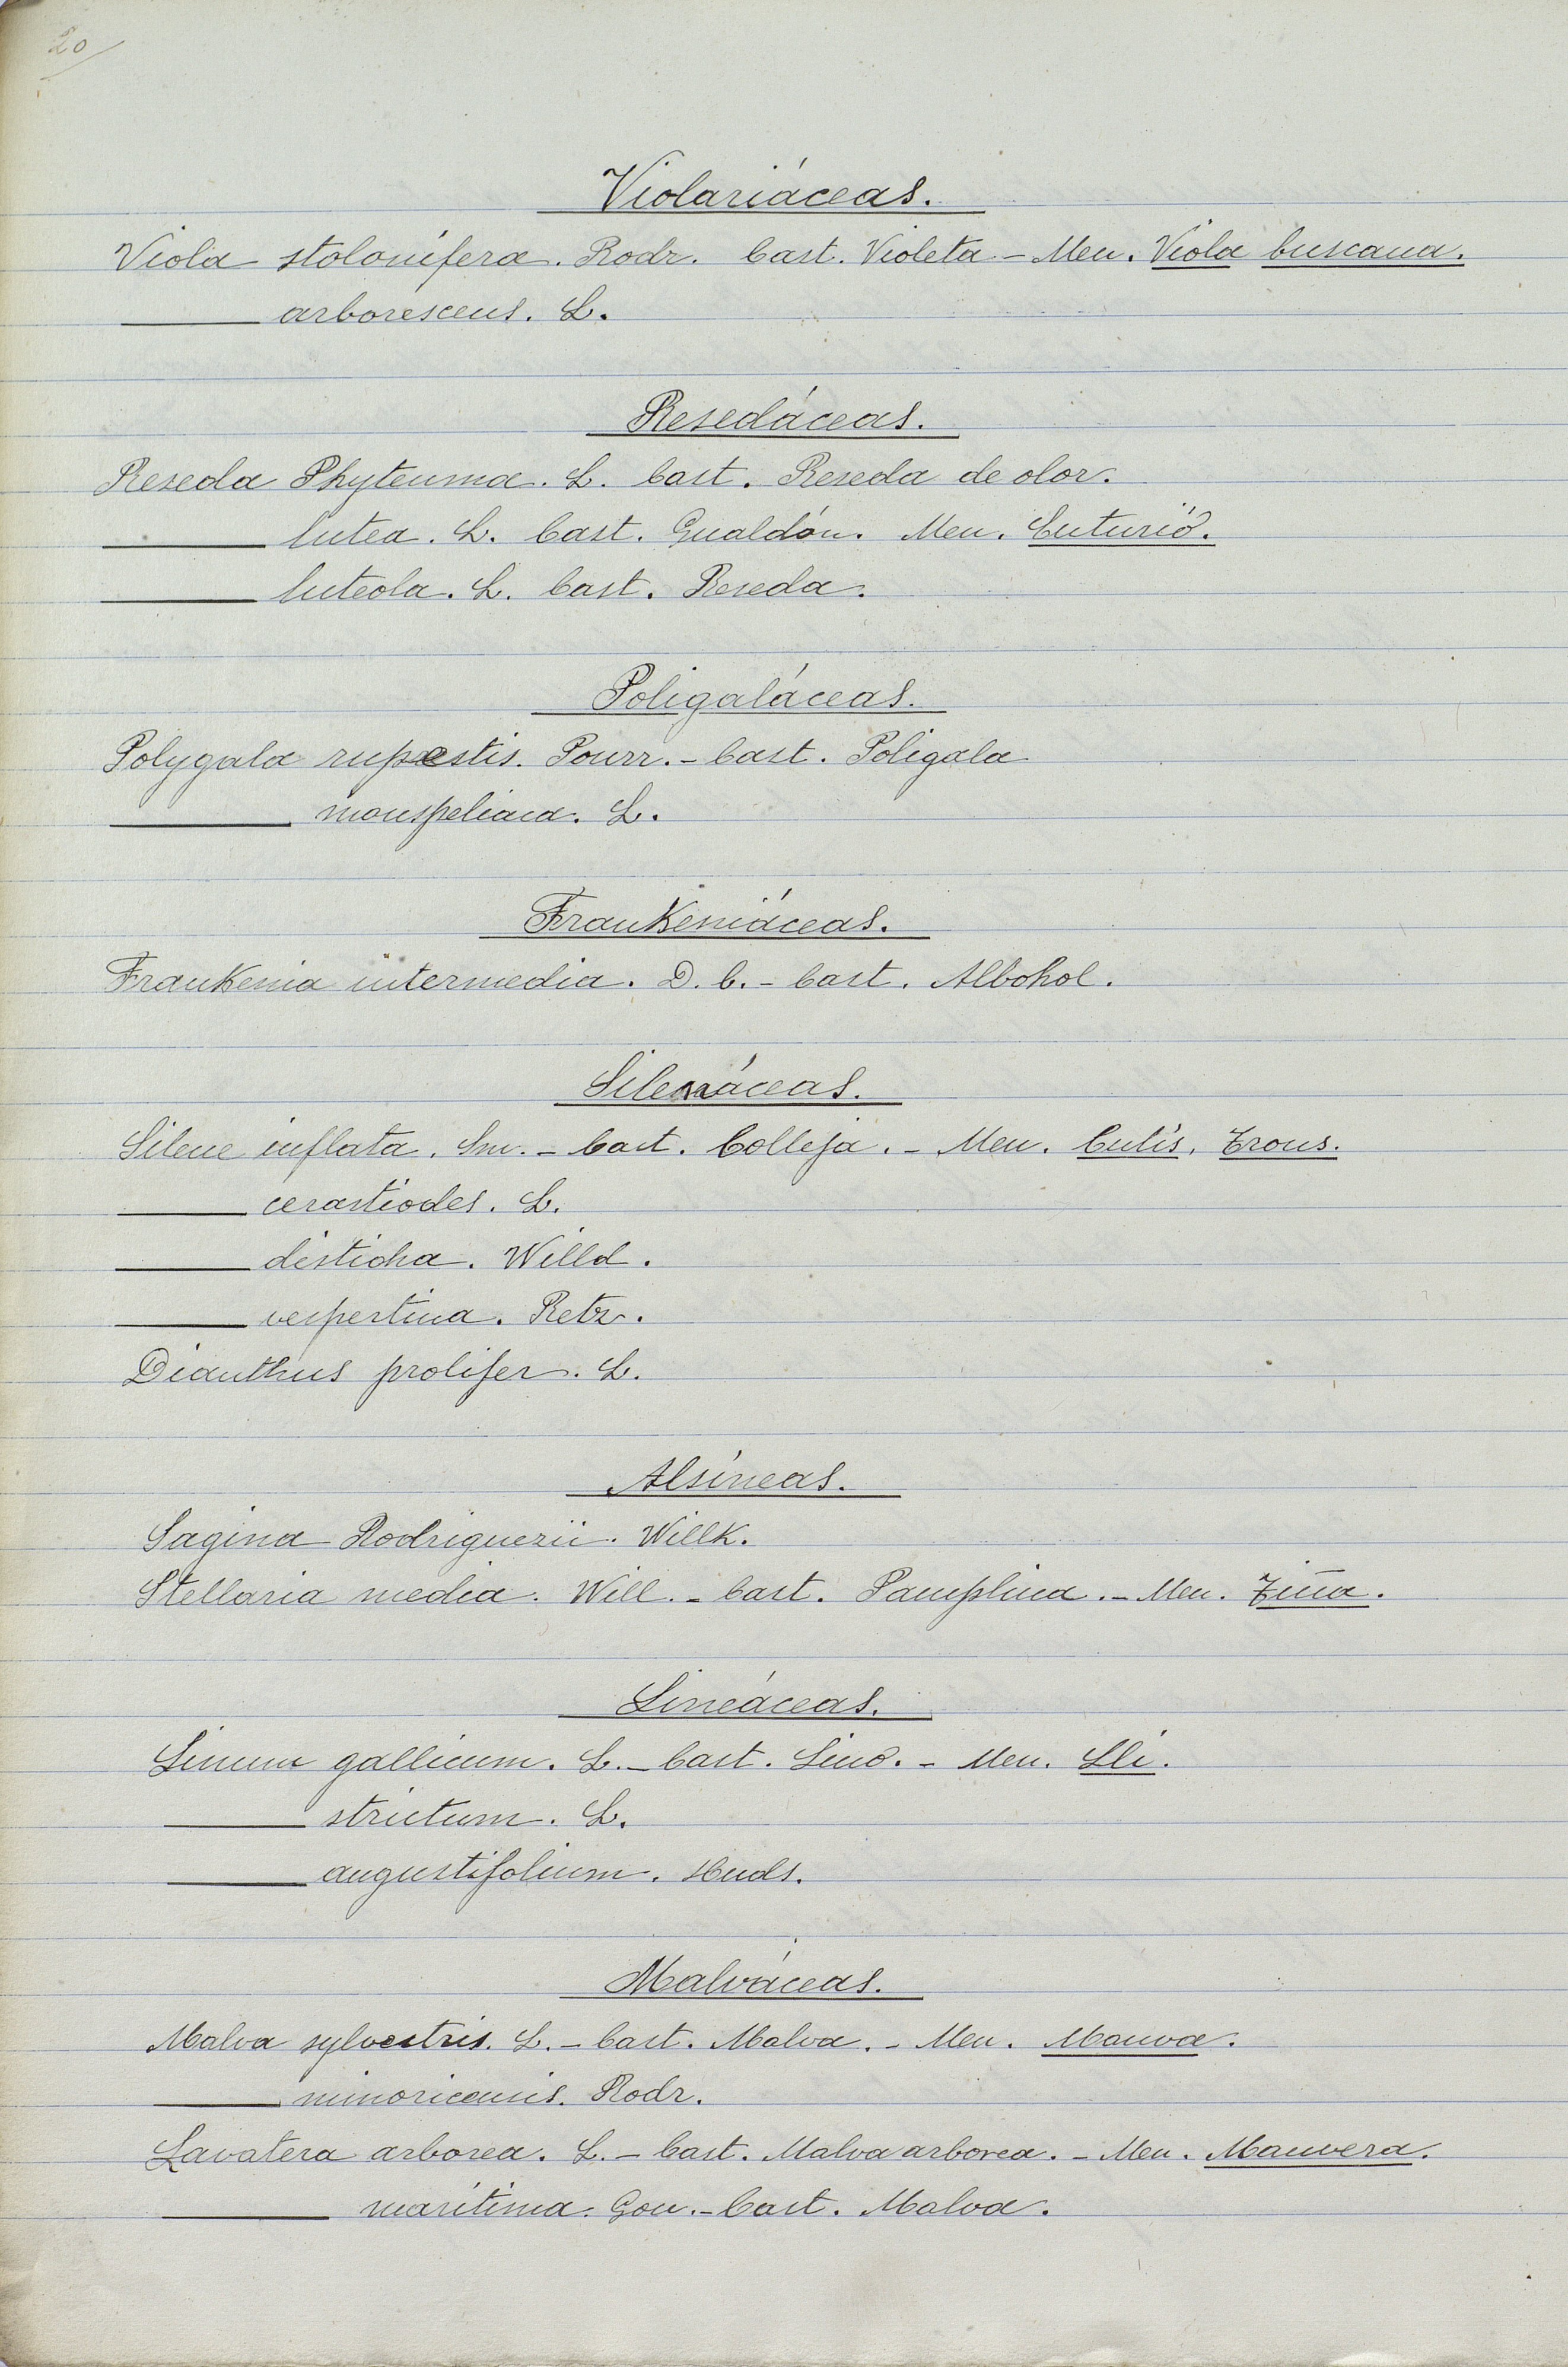 20
Violariáceas.
Viola stolonífera. Rodr. Cast. Violeta - Men. Viola buscana.
——— arborescens. L.
Resedáceas.
Reseda Phyteuma. L. Cast. Reseda de olor.
——— lutea. L. Cast. Gualdón. Men.
——— luteola. L. Cast. Reseda.
Poligaláceas.
Polygala rupestis. Pourr. - Cast. Poligala
——— monspeliaca. L.
Frankeniáceas.
Frankenia intermedia. D. C. - Cast. Albohol.
Silenáceas.
Silene inflata. Sm. - Cast. Colleja. - Men. Culís, Trons.
——— cerastiodes. L.
——— disticha. Willd.
——— vespertina. Retz.
Dianthus prolifer. L.
Alsíneas.
Sagina Rodriguezii. Willk.
Stellaria media. Will. - Cast. Pamplina. - Men.
Lineáceas.
Linum gallicum. L. - Cast. Lino. - Men. Lli.
——— strictum. L.
——— angustifolium. Huds.
Malváceas.
Malva sylvestris. L. - Cast. Malva. - Men. Mauva.
——— minoricensis. Rodr.
Lavatera arborea. L. - Cast. Malva arborea. - Men. Mauvera.
——— maritima. Gou. - Cast. Malva.